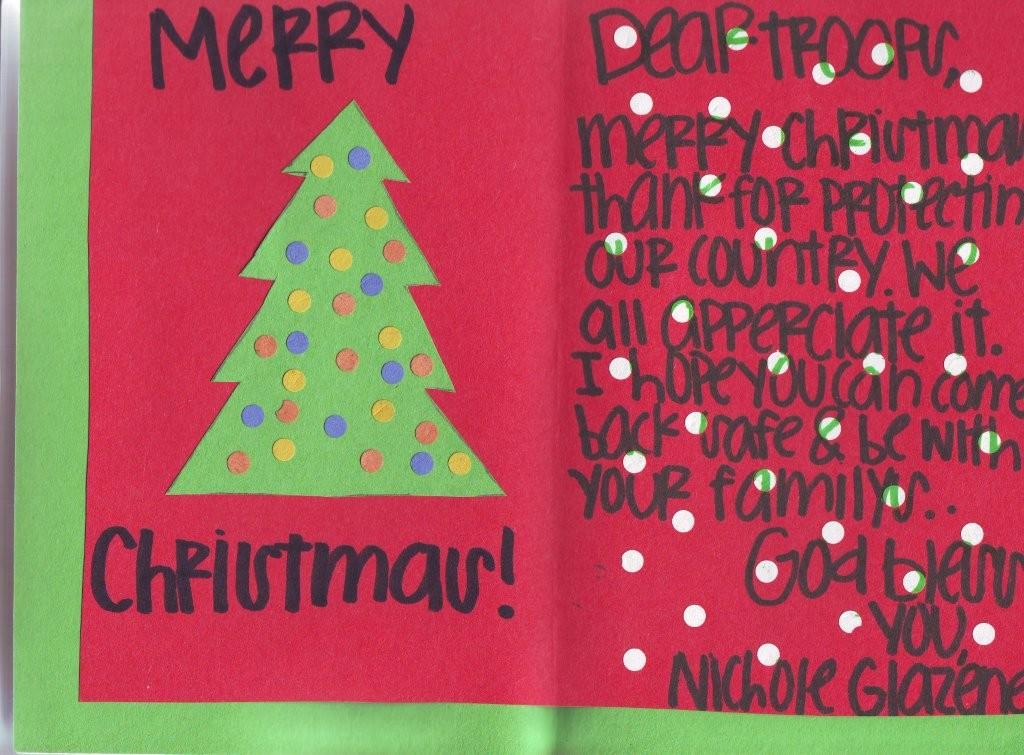 Merry
Christmas!
Dear troops,
merry christmas
thank for protectin
our country. We
all apperciate it.
I hope you can come
back safe & be with
your familys..
God bless
you,
Nichole Glazene